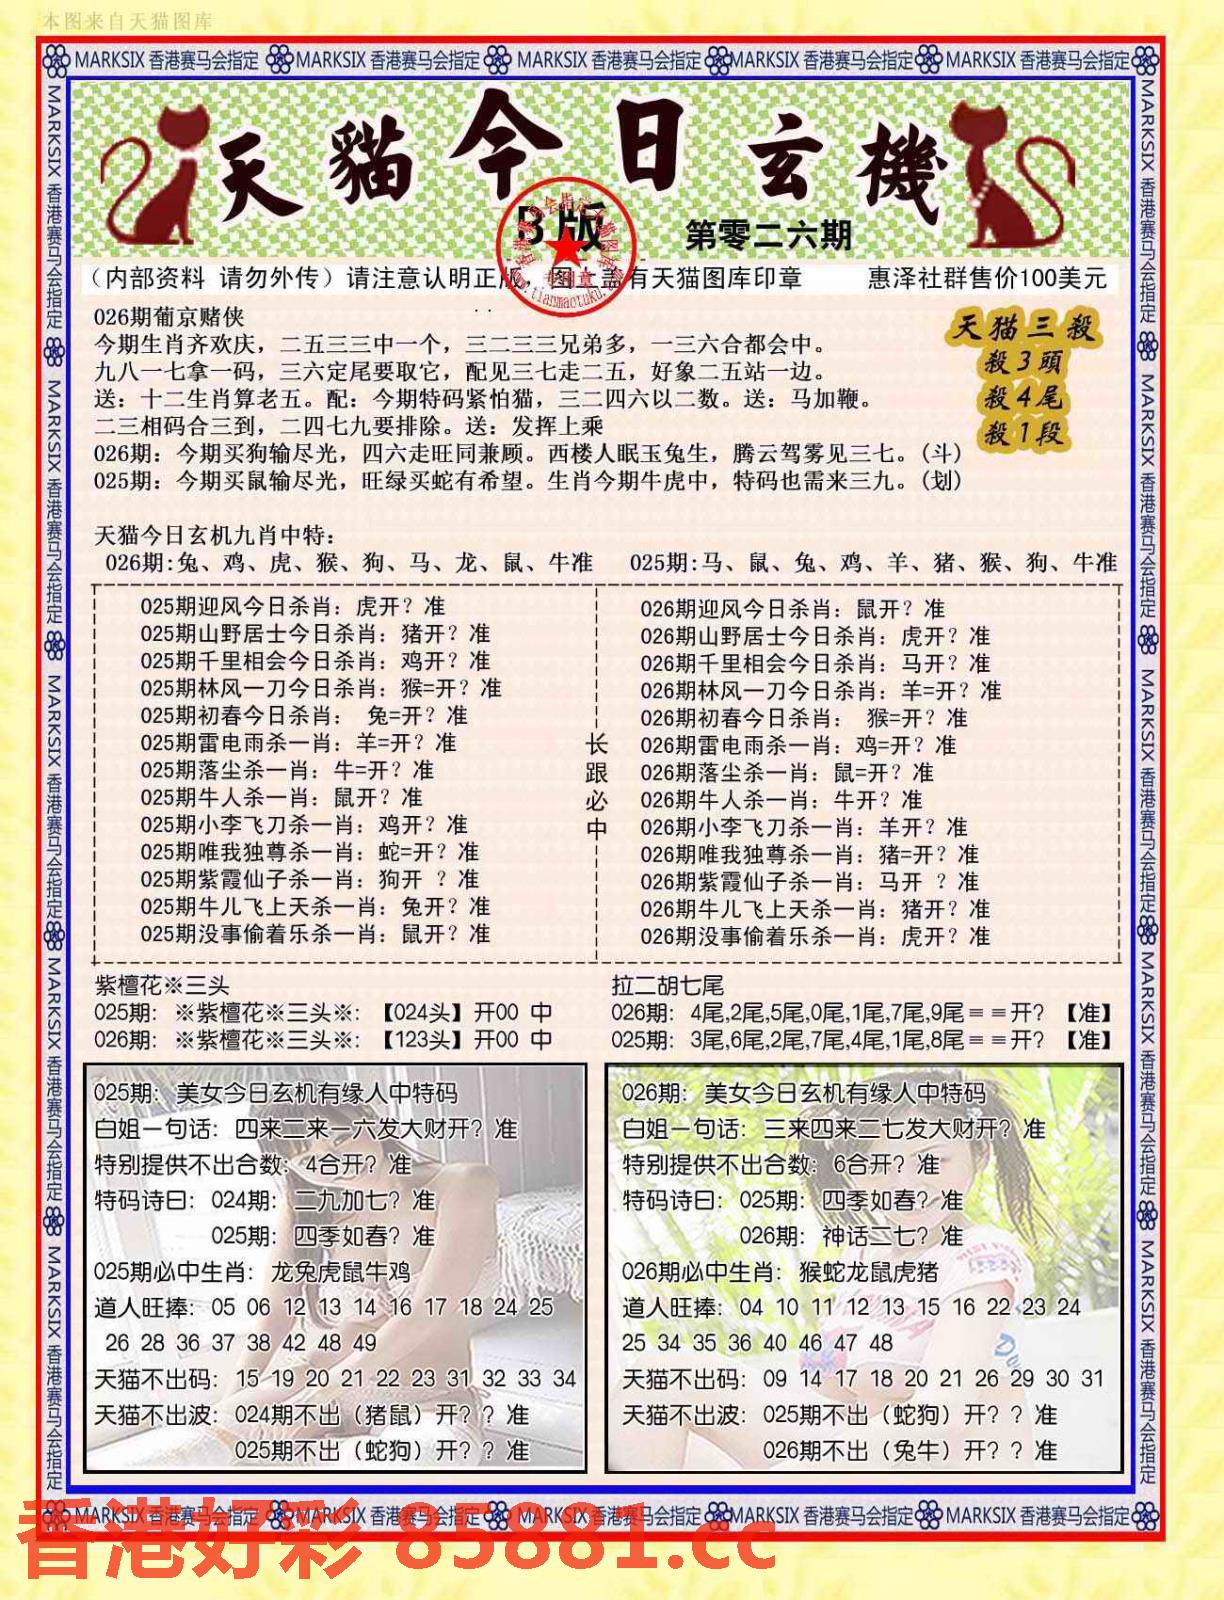 本图来自天猫图库
MARKSIX 香港赛马会指定 MARKSIX 香港赛马会指定 MARKSIX 香港赛马会指定 MARKSIX 香港赛马会指定 MARKSIX 香港赛马会指定
天貓今日玄機
B版
第零二六期
(内部资料 请勿外传) 请注意认明正版 图上盖有天猫图库印章 惠泽社群售价100美元
026期葡京赌侠
今期生肖齐欢庆，二五三三中一个，三二三三兄弟多，一三六合都会中。
九八一七拿一码，三六定尾要取它，配见三七走二五，好象二五站一边。
送：十二生肖算老五。配：今期特码紧怕猫，三二四六以二数。送：马加鞭。
二三相码合三到，二四七九要排除。送：发挥上乘
026期：今期买狗输尽光，四六走旺同兼顾。西楼人眠玉兔生，腾云驾雾见三七。(斗)
025期：今期买鼠输尽光，旺绿买蛇有希望。生肖今期牛虎中，特码也需来三九。(划)
天猫三殺
殺3頭
殺4尾
殺1段
天猫今日玄机九肖中特：
026期:兔、鸡、虎、猴、狗、马、龙、鼠、牛准 025期:马、鼠、兔、鸡、羊、猪、猴、狗、牛准
025期迎风今日杀肖：虎开？准
025期山野居士今日杀肖：猪开？准
025期千里相会今日杀肖：鸡开？准
025期林风一刀今日杀肖：猴=开？准
025期初春今日杀肖： 兔=开？准
025期雷电雨杀一肖：羊=开？准
025期落尘杀一肖：牛=开？准
025期牛人杀一肖：鼠开？准
025期小李飞刀杀一肖：鸡开？准
025期唯我独尊杀一肖：蛇=开？准
025期紫霞仙子杀一肖：狗开 ？准
025期牛儿飞上天杀一肖：兔开？准
025期没事偷着乐杀一肖：鼠开？准
长跟必中
026期迎风今日杀肖：鼠开？准
026期山野居士今日杀肖：虎开？准
026期千里相会今日杀肖：马开？准
026期林风一刀今日杀肖：羊=开？准
026期初春今日杀肖： 猴=开？准
026期雷电雨杀一肖：鸡=开？准
026期落尘杀一肖：鼠=开？准
026期牛人杀一肖：牛开？准
026期小李飞刀杀一肖：羊开？准
026期唯我独尊杀一肖：猪=开？准
026期紫霞仙子杀一肖：马开 ？准
026期牛儿飞上天杀一肖：猪开？准
026期没事偷着乐杀一肖：虎开？准
紫檀花※三头
025期：※紫檀花※三头※：【024头】开00 中
026期：※紫檀花※三头※：【123头】开00 中
拉二胡七尾
026期：4尾,2尾,5尾,0尾,1尾,7尾,9尾＝＝开？【准】
025期：3尾,6尾,2尾,7尾,4尾,1尾,8尾＝＝开？【准】
025期：美女今日玄机有缘人中特码
白姐一句话：四来二来一六发大财开？准
特别提供不出合数：4合开？准
特码诗曰：024期：二九加七？准
025期：四季如春？准
025期必中生肖：龙兔虎鼠牛鸡
道人旺捧：05 06 12 13 14 16 17 18 24 25
26 28 36 37 38 42 48 49
天猫不出码：15 19 20 21 22 23 31 32 33 34
天猫不出波：024期不出（猪鼠）开？？准
025期不出（蛇狗）开？？准
026期：美女今日玄机有缘人中特码
白姐一句话：三来四来二七发大财开？准
特别提供不出合数：6合开？准
特码诗曰：025期：四季如春？准
026期：神话二七？准
026期必中生肖：猴蛇龙鼠虎猪
道人旺捧：04 10 11 12 13 15 16 22 23 24
25 34 35 36 40 46 47 48
天猫不出码：09 14 17 18 20 21 26 29 30 31
天猫不出波：025期不出（蛇狗）开？？准
026期不出（兔牛）开？？准
MARKSIX 香港赛马会指定 MARKSIX 香港赛马会指定 MARKSIX 香港赛马会指定 MARKSIX 香港赛马会指定 MARKSIX 香港赛马会指定
香港好彩 85881.cc